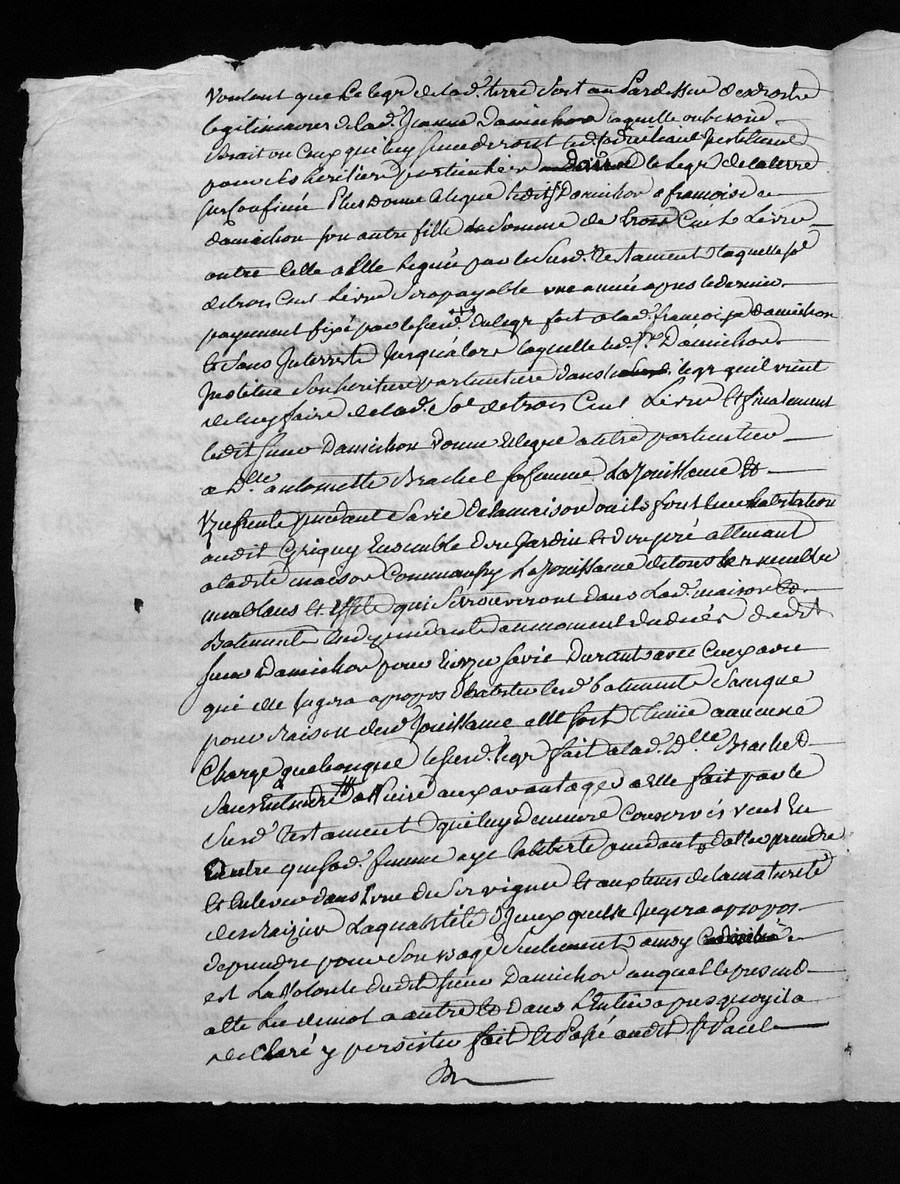 Voulant que le legs de lad.e terre soit au pardessus de ses droits
legitimaires de lad.e Jeanne Damichon laquelle
ou ceux qui luy succederont led.
pour ses heritiers particuliers le legs de la terre
sus confinée Plus donne et legue ledit s.r Damichon a francoise
damichon son autre fille la somme de trois Cent Livres
outre Celle a Elle leguée par le susd. testament laquelle so.e
de trois Cent Livres sera payable une année apres le dernier
payement fixé par le susd. legs fait a lad.e francoise Damichon
et sans Interrets Jusqu'alors laquelle led. s.r Damichon
Institue son heritiere particuliere dans le legs qu'il vient
de luy faire de lad.e So.e de trois Cent Livres Et finalement
ledit sieur Damichon donne et legue a titre particulier
a D.lle antoinette Brachet sa femme La Jouissance et
usufruit pendant sa vie de la maison ou ils font leur habitation
audit Grigny Ensemble du Jardin et du pré attenant
a ladite maison Comm'aussy La Jouissance de tous les meubles
meublans et effets qui se trouveront dans Lad.e maison et
Batiments en dependants au moment du decés dudit
sieur Damichon pour Jouir sa vie durant avec Ceux avec
qui elle Jugera apropos d'habiter lesd. batiments sans que
pour raison de lad. Jouissance elle soit tenue a aucune
Charge quelconque le susd. legs fait a lad.e D.lle Brachet
sans Entendre Nuire aux avantages a Elle fait par le
susd. testament qui luy demeure conservés veut En
Outre que sad.e femme aye la liberté pendant d'aller prendre
et Enlever dans l'une de ses vignes et aux tems de la maturité
des raizins La quantité d'Jceux qu'elle Jugera apropos
de prendre pour son usage seulement ainsy
est La Volonté dudit sieur Damichon auquel le present
acte Lu de mot a autre et dans L'Entier apres quoy il a
declaré y persister fait et Passé audit St Paul